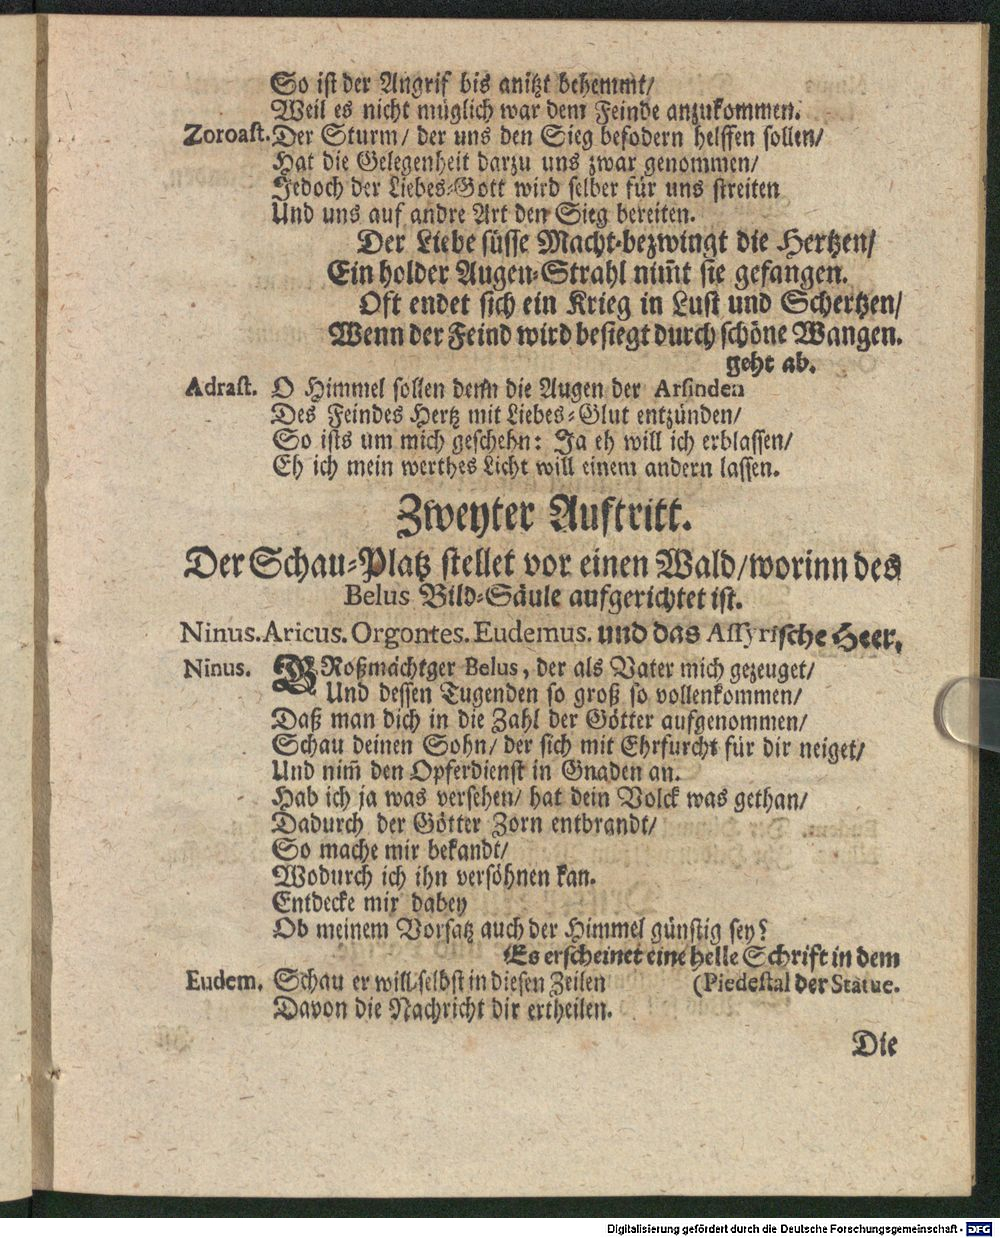 So ist der Angrif bis anitzt behemmt/
Weil es nicht müglich war dem Feinde anzukommen.
Zoroast. Der Sturm/ der uns den Sieg befodern helffen sollen/
Hat die Gelegenheit darzu uns zwar genommen/
Jedoch der Liebes-Gott wird selber für uns streiten
Und uns auf andre Art den Sieg bereiten.
Der Liebe süsse Macht bezwingt die Hertzen/
Ein holder Augen-Strahl nim̃t sie gefangen.
Oft endet sich ein Krieg in Lust und Schertzen/
Wenn der Feind wird besiegt durch schöne Wangen.
geht ab.
Adrast. O Himmel sollen denn die Augen der Arsinden
Des Feindes Hertz mit Liebes-Glut entzünden/
So ists um mich geschehn: Ja eh will ich erblassen/
Eh ich mein werthes Licht will einem andern lassen.
Zweyter Auftritt.
Der Schau-Platz stellet vor einen Wald/worinn des
Belus Bild-Säule aufgerichtet ist.
Ninus. Aricus. Orgontes. Eudemus. und das Assyrische Heer,
Ninus. GRoßmächtger Belus, der als Vater mich gezeuget/
Und dessen Tugenden so groß so vollenkommen/
Daß man dich in die Zahl der Götter aufgenommen/
Schau deinen Sohn/ der sich mit Ehrfurcht für dir neiget/
Und nim̃ den Opferdienst in Gnaden an.
Hab ich ja was versehen/ hat dein Volck was gethan/
Dadurch der Götter Zorn entbrandt/
So mache mir bekandt/
Wodurch ich ihn versöhnen kan.
Entdecke mir dabey
Ob meinem Vorsatz auch der Himmel günstig sey?
(Es erscheinet eine helle Schrift in dem
Eudem. Schau er will selbst in diesen Zeilen (Piedestal der Statue.
Davon die Nachricht dir ertheilen.
Die
Digitalisierung gefördert durch die Deutsche Forschungsgemeinschaft - DFG